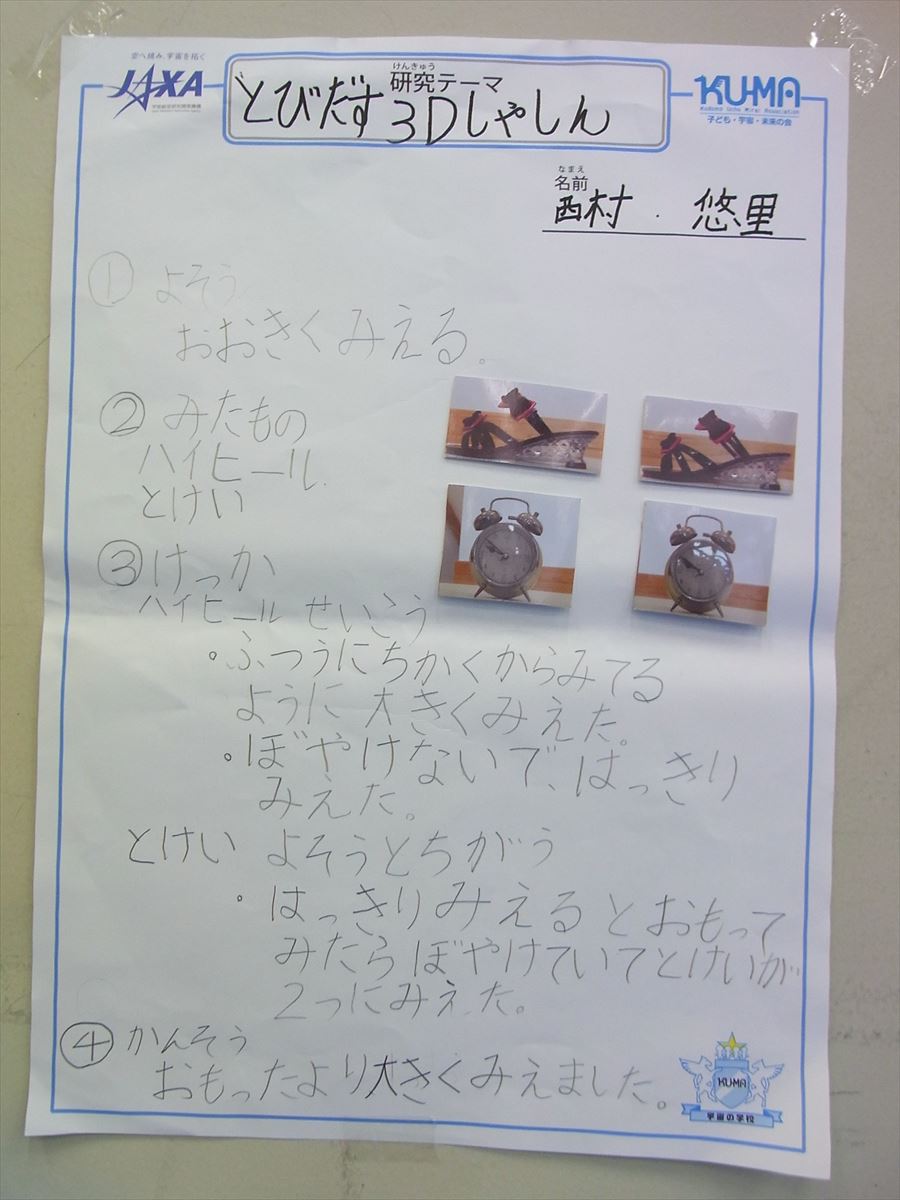 空へ挑み、宇宙を拓く
JAXA
けんきゅう
研究テーマ
とびだす3Dしゃしん
KU-MA
子ども・宇宙・未来の会
なまえ
名前
西村 悠里
① よそう
おおきくみえる。
② みたもの
ハイヒール
とけい
③ けっか
ハイヒール せいこう
・ふつうにちかくからみてる
ように大きくみえた。
・ぼやけないで、はっきり
みえた。
とけい よそうとちがう
・はっきりみえるとおもって
みたらぼやけていてとけいが
2つにみえた。
④ かんそう
おもったより大きくみえました。
KUMA
宇宙の学校